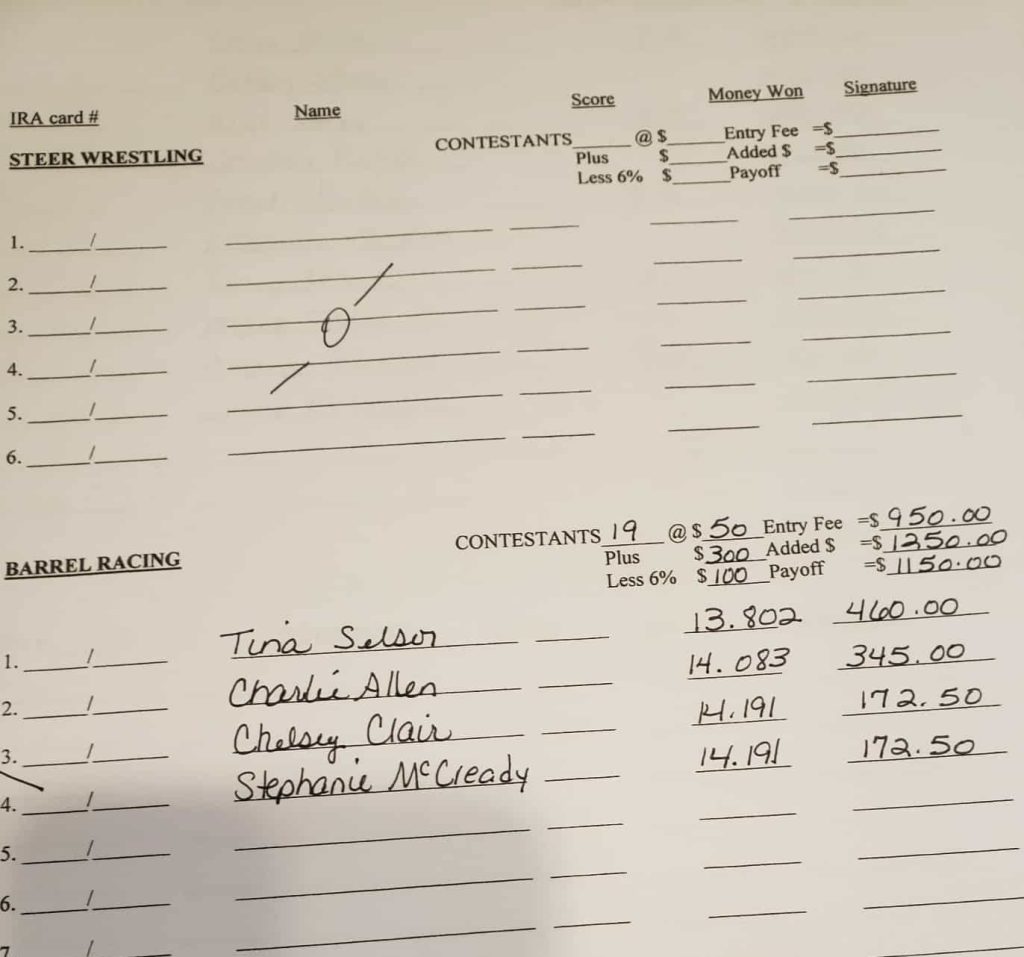 IRA card # Name Score Money Won Signature
STEER WRESTLING CONTESTANTS______@ $______Entry Fee =$__________
Plus $______Added $ =$__________
Less 6% $______Payoff =$__________
1. ______/_______
2. ______/_______
3. ______/_______ 0
4. ______/_______
5. ______/_______
6. ______/_______
BARREL RACING CONTESTANTS 19 @ $ 50 Entry Fee =$ 950.00
Plus $ 300 Added $ =$ 1250.00
Less 6% $ 100 Payoff =$ 1150.00
1. ______/_______ Tina Selsor 13.802 460.00
2. ______/_______ Charlie Allen 14.083 345.00
3. ______/_______ Chelsey Clair 14.191 172.50
4. ______/_______ Stephanie McCready 14.191 172.50
5. ______/_______
6. ______/_______
7 ______/_______